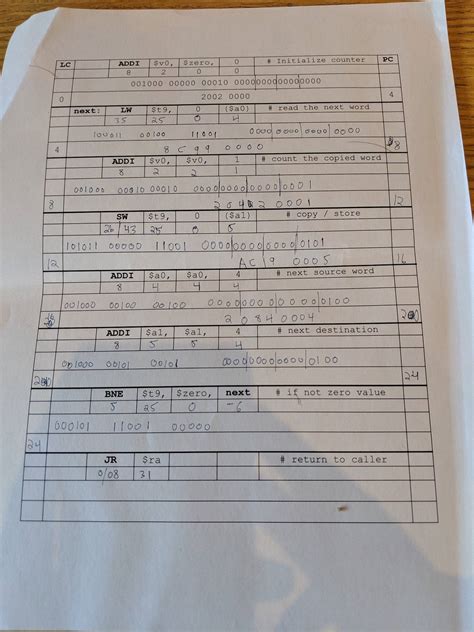 LC ADDI $v0, $zero, 0 # Initialize counter PC
8 2 0 0
001000 00000 00010 0000000000000000
0 2002 0000 4
next: LW $t9, 0 ($a0) # read the next word
35 25 0 4
100011 00100 11001 0000 0000 0000 0000
4 8 C 9 9 0 0 0 0 8
ADDI $v0, $v0, 1 # count the copied word
8 2 2 1
001000 00010 00010 0000000000000001
8 2 0 4 2 0 0 0 1 12
SW $t9, 0 ($a1) # copy / store
43 25 0 5
101011 00000 11001 0000000000000101
12 AC 19 0005 16
ADDI $a0, $a0, 4 # next source word
8 4 4 4
001000 00100 00100 0000000000000100
2 0 8 4 0 0 0 4 20
ADDI $a1, $a1, 4 # next destination
8 5 5 4
001000 00101 00101 0000000000000100
20 24
BNE $t9, $zero, next # if not zero value
5 25 0 -6
000101 11001 00000
24
JR $ra # return to caller
0/08 31